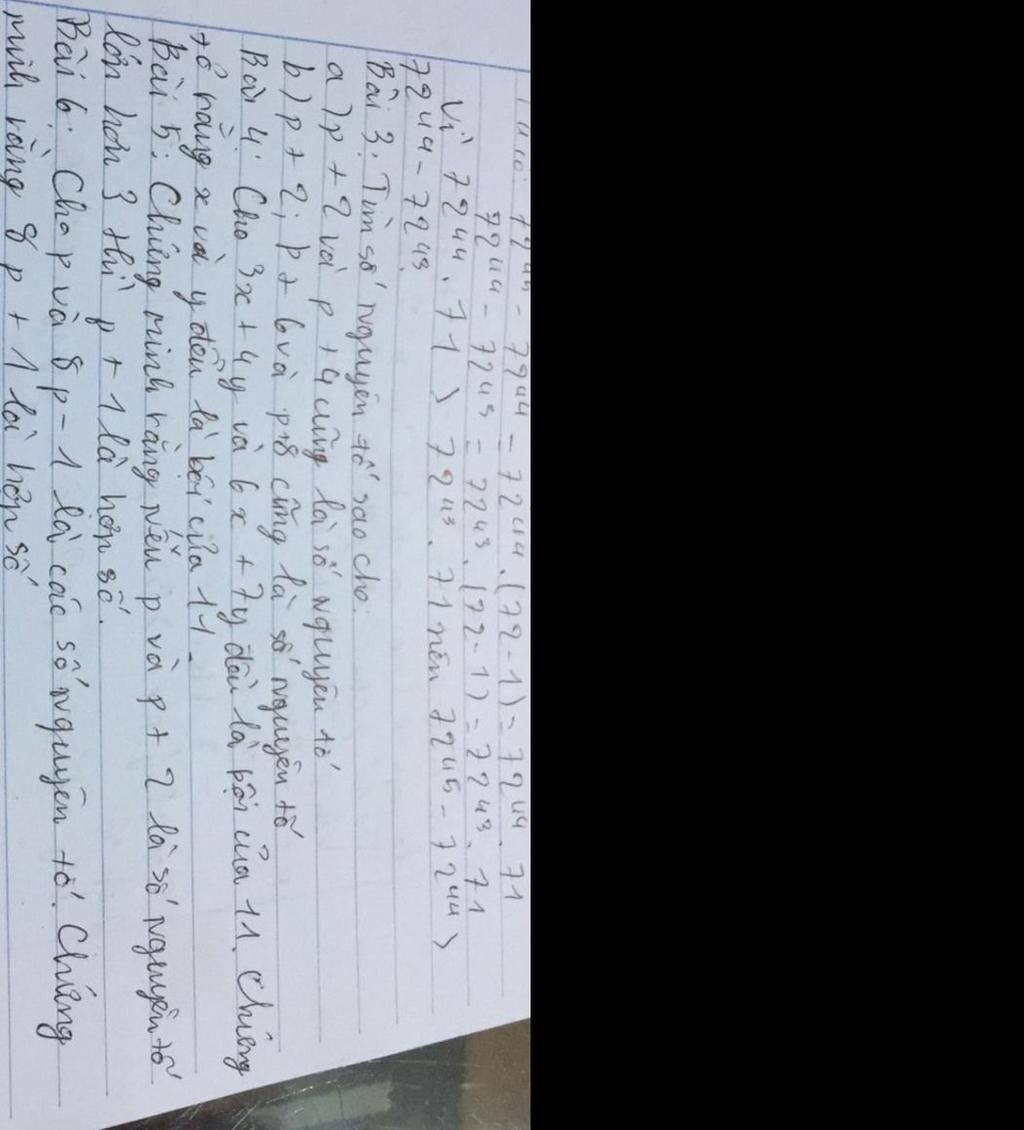 72⁴⁵ - 72⁴⁴ = 72⁴⁴.(72-1) = 72⁴⁴.71
72⁴⁴ - 72⁴³ = 72⁴³.(72-1) = 72⁴³.71
Vì 72⁴⁴.71 > 72⁴³.71 nên 72⁴⁵ - 72⁴⁴ >
72⁴⁴ - 72⁴³.
Bài 3: Tìm số nguyên tố sao cho:
a) p + 2 và p + 4 cũng là số nguyên tố
b) p + 2; p + 6 và p+8 cũng là số nguyên tố
Bài 4: Cho 3x + 4y và 6x + 7y đều là bội của 11. Chứng
tỏ rằng x và y đều là bội của 11.
Bài 5: Chứng minh rằng nếu p và p + 2 là số nguyên tố
lớn hơn 3 thì p + 1 là hợp số.
Bài 6: Cho p và 8p - 1 là các số nguyên tố. Chứng
minh rằng 8p + 1 là hợp số